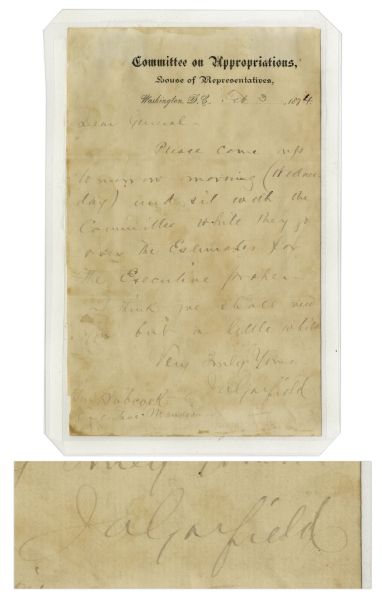 Committee on Appropriations,
House of Representatives,
Washington, D.C. Feb 3 1874
Dear General—
Please come up
tomorrow morning (Wednes
day) and sit with the
Committee while they go
over the Estimates for
the Executive proper—
I think we shall need
you but a little while
Very Truly Yours
J A Garfield
Gen Babcock
Mansion
Truly Yours
J A Garfield